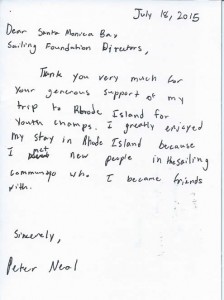 July 18, 2015
Dear Santa Monica Bay
Sailing Foundation Directors,
Thank you very much for
your generous support of my
trip to Rhode Island for
Youth champs. I greatly enjoyed
my stay in Rhode Island because
I met new people in the sailing
community who I became friends
with.
Sincerely,
Peter Neal